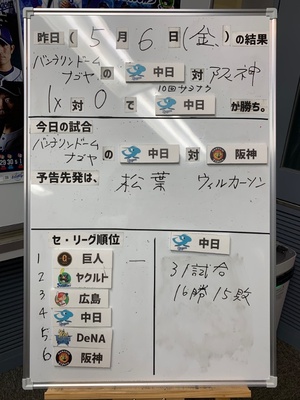 昨日( 5月6日(金) )の結果
バンテリンドーム
ナゴヤ の 中日 対 阪神
10回サヨナラ
1x 対 0 で 中日 が勝ち。
今日の試合
バンテリンドーム
ナゴヤ の 中日 対 阪神
予告先発は、 松葉 ウィルカーソン
セ・リーグ順位
1 巨人 —
2 ヤクルト
3 広島
4 中日
5 DeNA
6 阪神
中日
31試合
16勝15敗